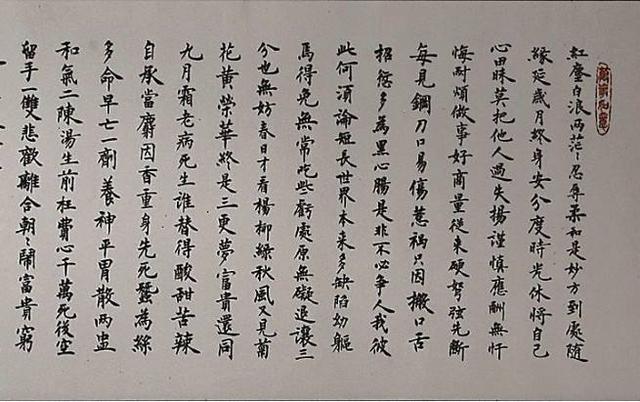 紅塵白浪兩茫〻忍辱柔和是妙方到處隨
緣延歲月終身安分度時光休將自己
心田昧莫把他人過失揚謹慎應酬無
悔耐煩做事好商量從來硬弩弦先斷
每見鋼刀口易傷惹禍只因搬口舌
招愆多為黑心腸是非不必爭人我彼
此何須論短長世界本來多缺陷幻軀
焉得免無常吃些虧處原無礙退讓三
分也無妨春日才看楊柳綠秋風又見菊
花黃榮華終是三更夢富貴還同
九月霜老病死生誰替得酸甜苦辣
自承當麝因香重身先死蠶為絲
多命早亡一劑養神平胃散兩盅
和氣二陳湯生前枉費心千萬死後空
留手一雙悲歡離合朝〻鬧富貴窮